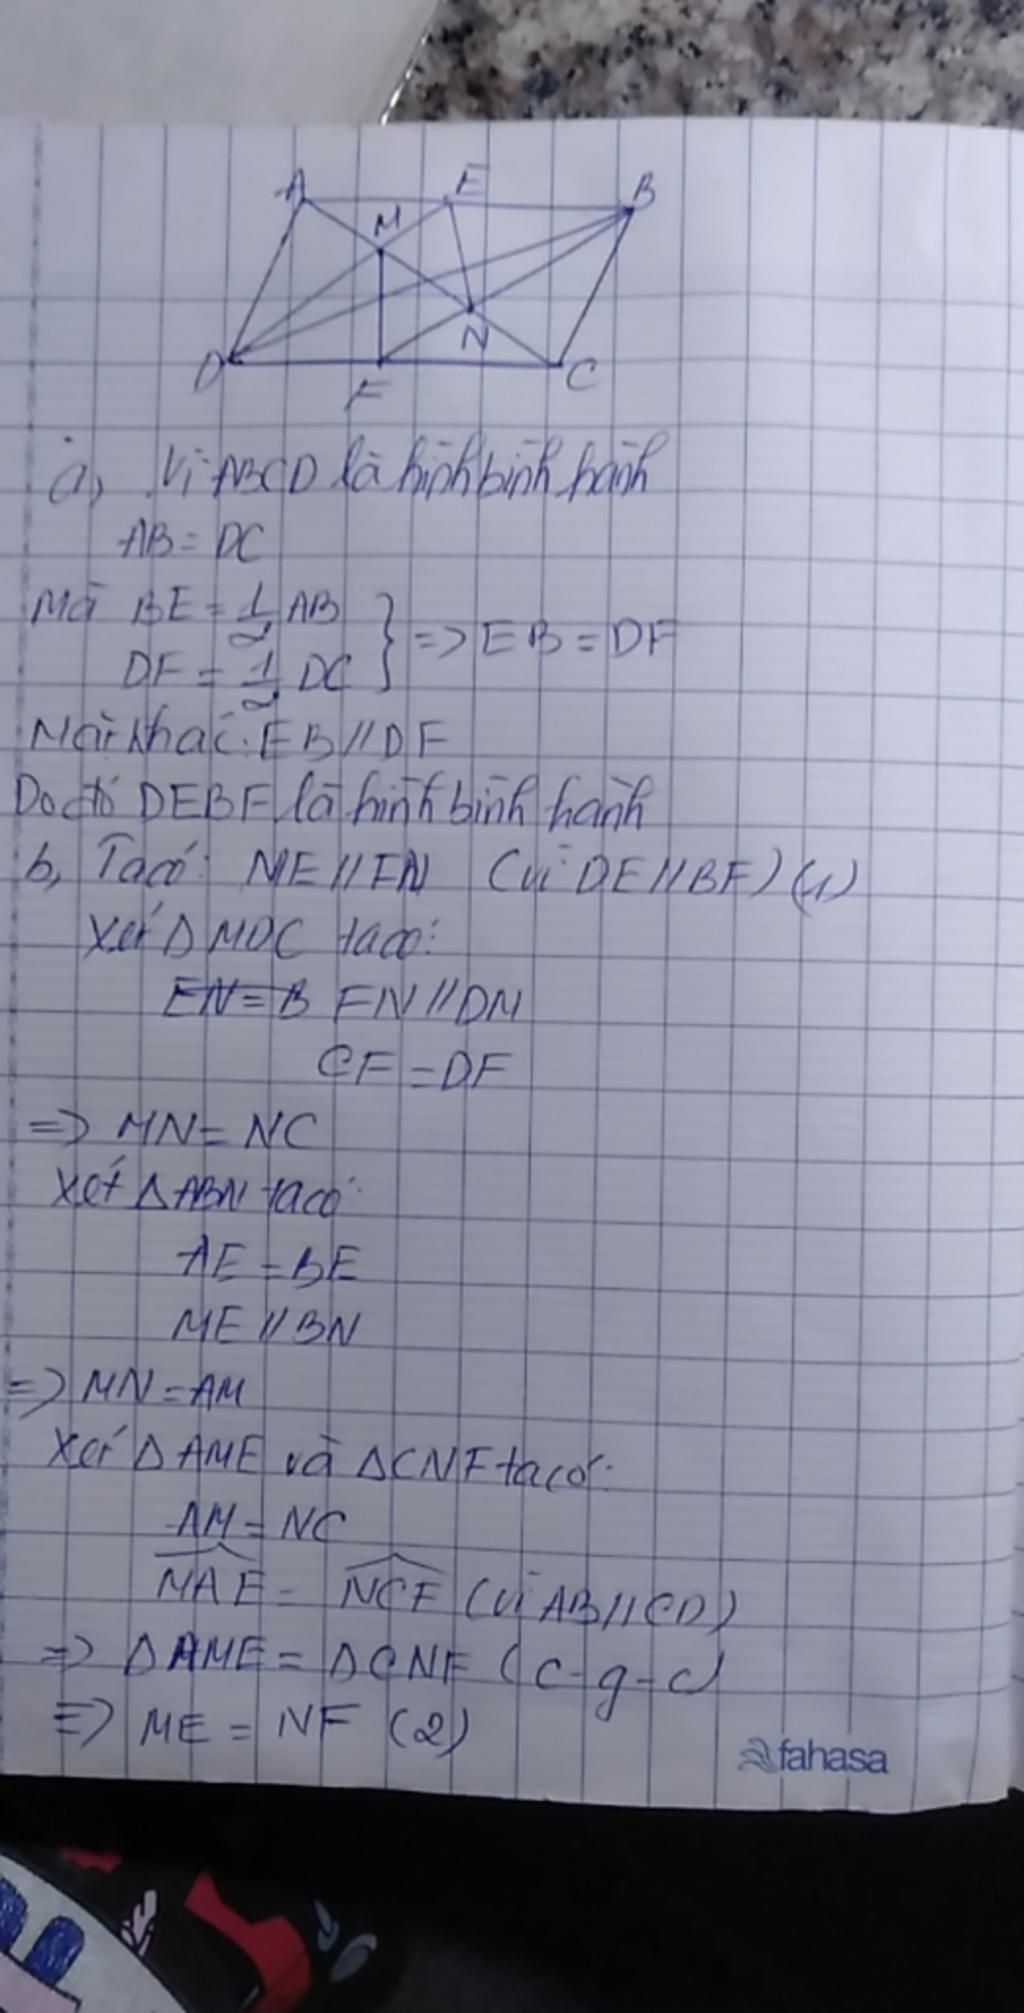 A E B
M
N
D F C
a, Vì ABCD là hình bình hành
AB = DC
Mà BE = 1/2 AB
DF = 1/2 DC } => EB = DF
Mặt khác: EB // DF
Do đó DEBF là hình bình hành
b, Ta có: ME // FN (vì DE // BF) (1)
Xét Δ MDC ta có:
EN = B FN // DM
CF = DF
=> MN = NC
Xét Δ ABN ta có:
AE = BE
ME // BN
=> MN = AM
Xét Δ AME và Δ CNF ta có:
AM = NC
MAE = NCF (vì AB // CD)
=> Δ AME = Δ CNF (c-g-c)
=> ME = NF (2)
fahasa